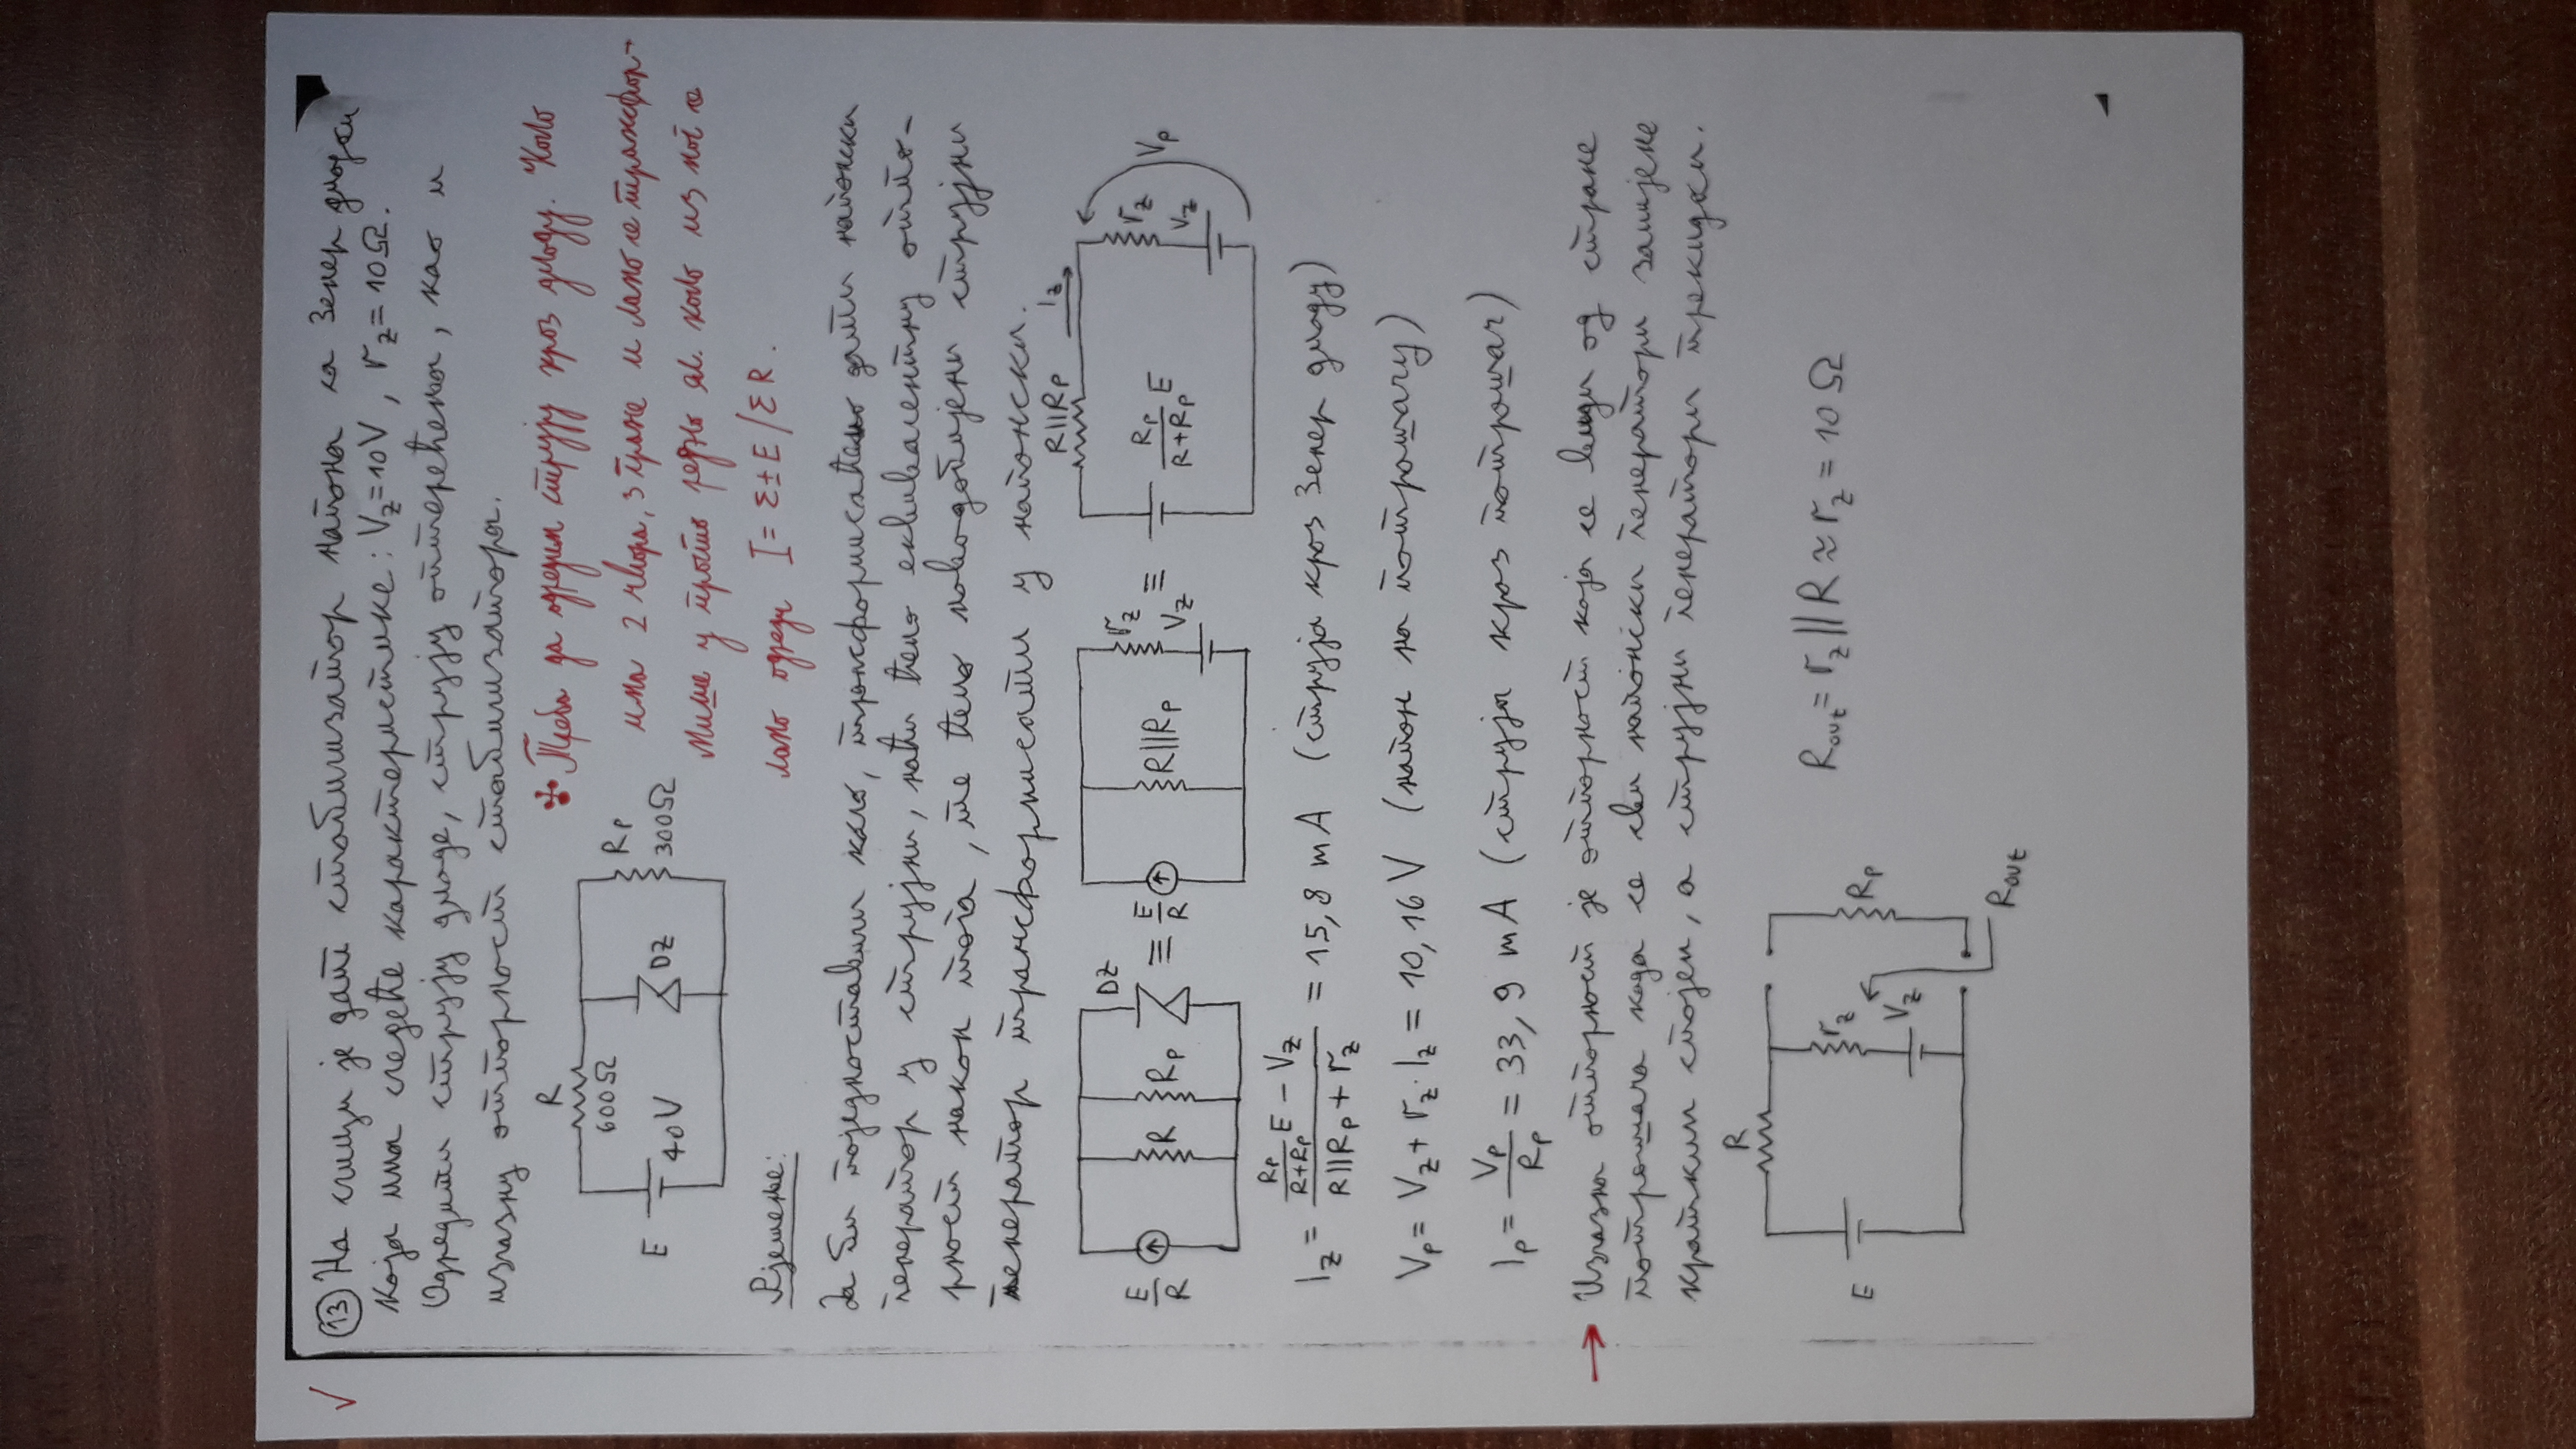 ✓
13 На слици је дат стабилизатор напона са Зенер диодом
која има следеће карактеристике: Vz=10V, rz=10Ω.
Одредити струју диоде, струју оптерећења, као и
излазну отпорност стабилизатора.
R
600Ω
E
40V
DZ
Rp
300Ω
* Треба да одредим струју кроз диоду. Коло
има 2 чвора, 3 гране и лако се трансфор-
мише у просто редно ел. коло из ког се
лако одреди I = Σ±E/ΣR.
Рјешење:
Да би поједноставили коло, трансформисаћемо дати напонски
генератор у струјни, наћи ћемо еквивалентну отпо-
рност након тога, те ћемо новодобијени струјни
генератор трансформисати у напонски.
E/R
R
Rp
DZ
≡
E/R
R||Rp
rz
Vz
≡
R||Rp
Iz
Rp/(R+Rp) E
rz
Vz
Vp
Iz = (Rp/(R+Rp) E - Vz)/(R||Rp + rz) = 15,8 mA (струја кроз Зенер диоду)
Vp = Vz + rz · Iz = 10,16 V (напон на потрошачу)
Ip = Vp/Rp = 33,9 mA (струја кроз потрошач)
→ Излазна отпорност је отпорност која се види од стране
потрошача када се сви напонски генератори замијене
кратким спојем, а струјни генератори прекидом.
R
E
rz
Vz
Rp
Rout
Rout = rz||R ≈ rz = 10 Ω